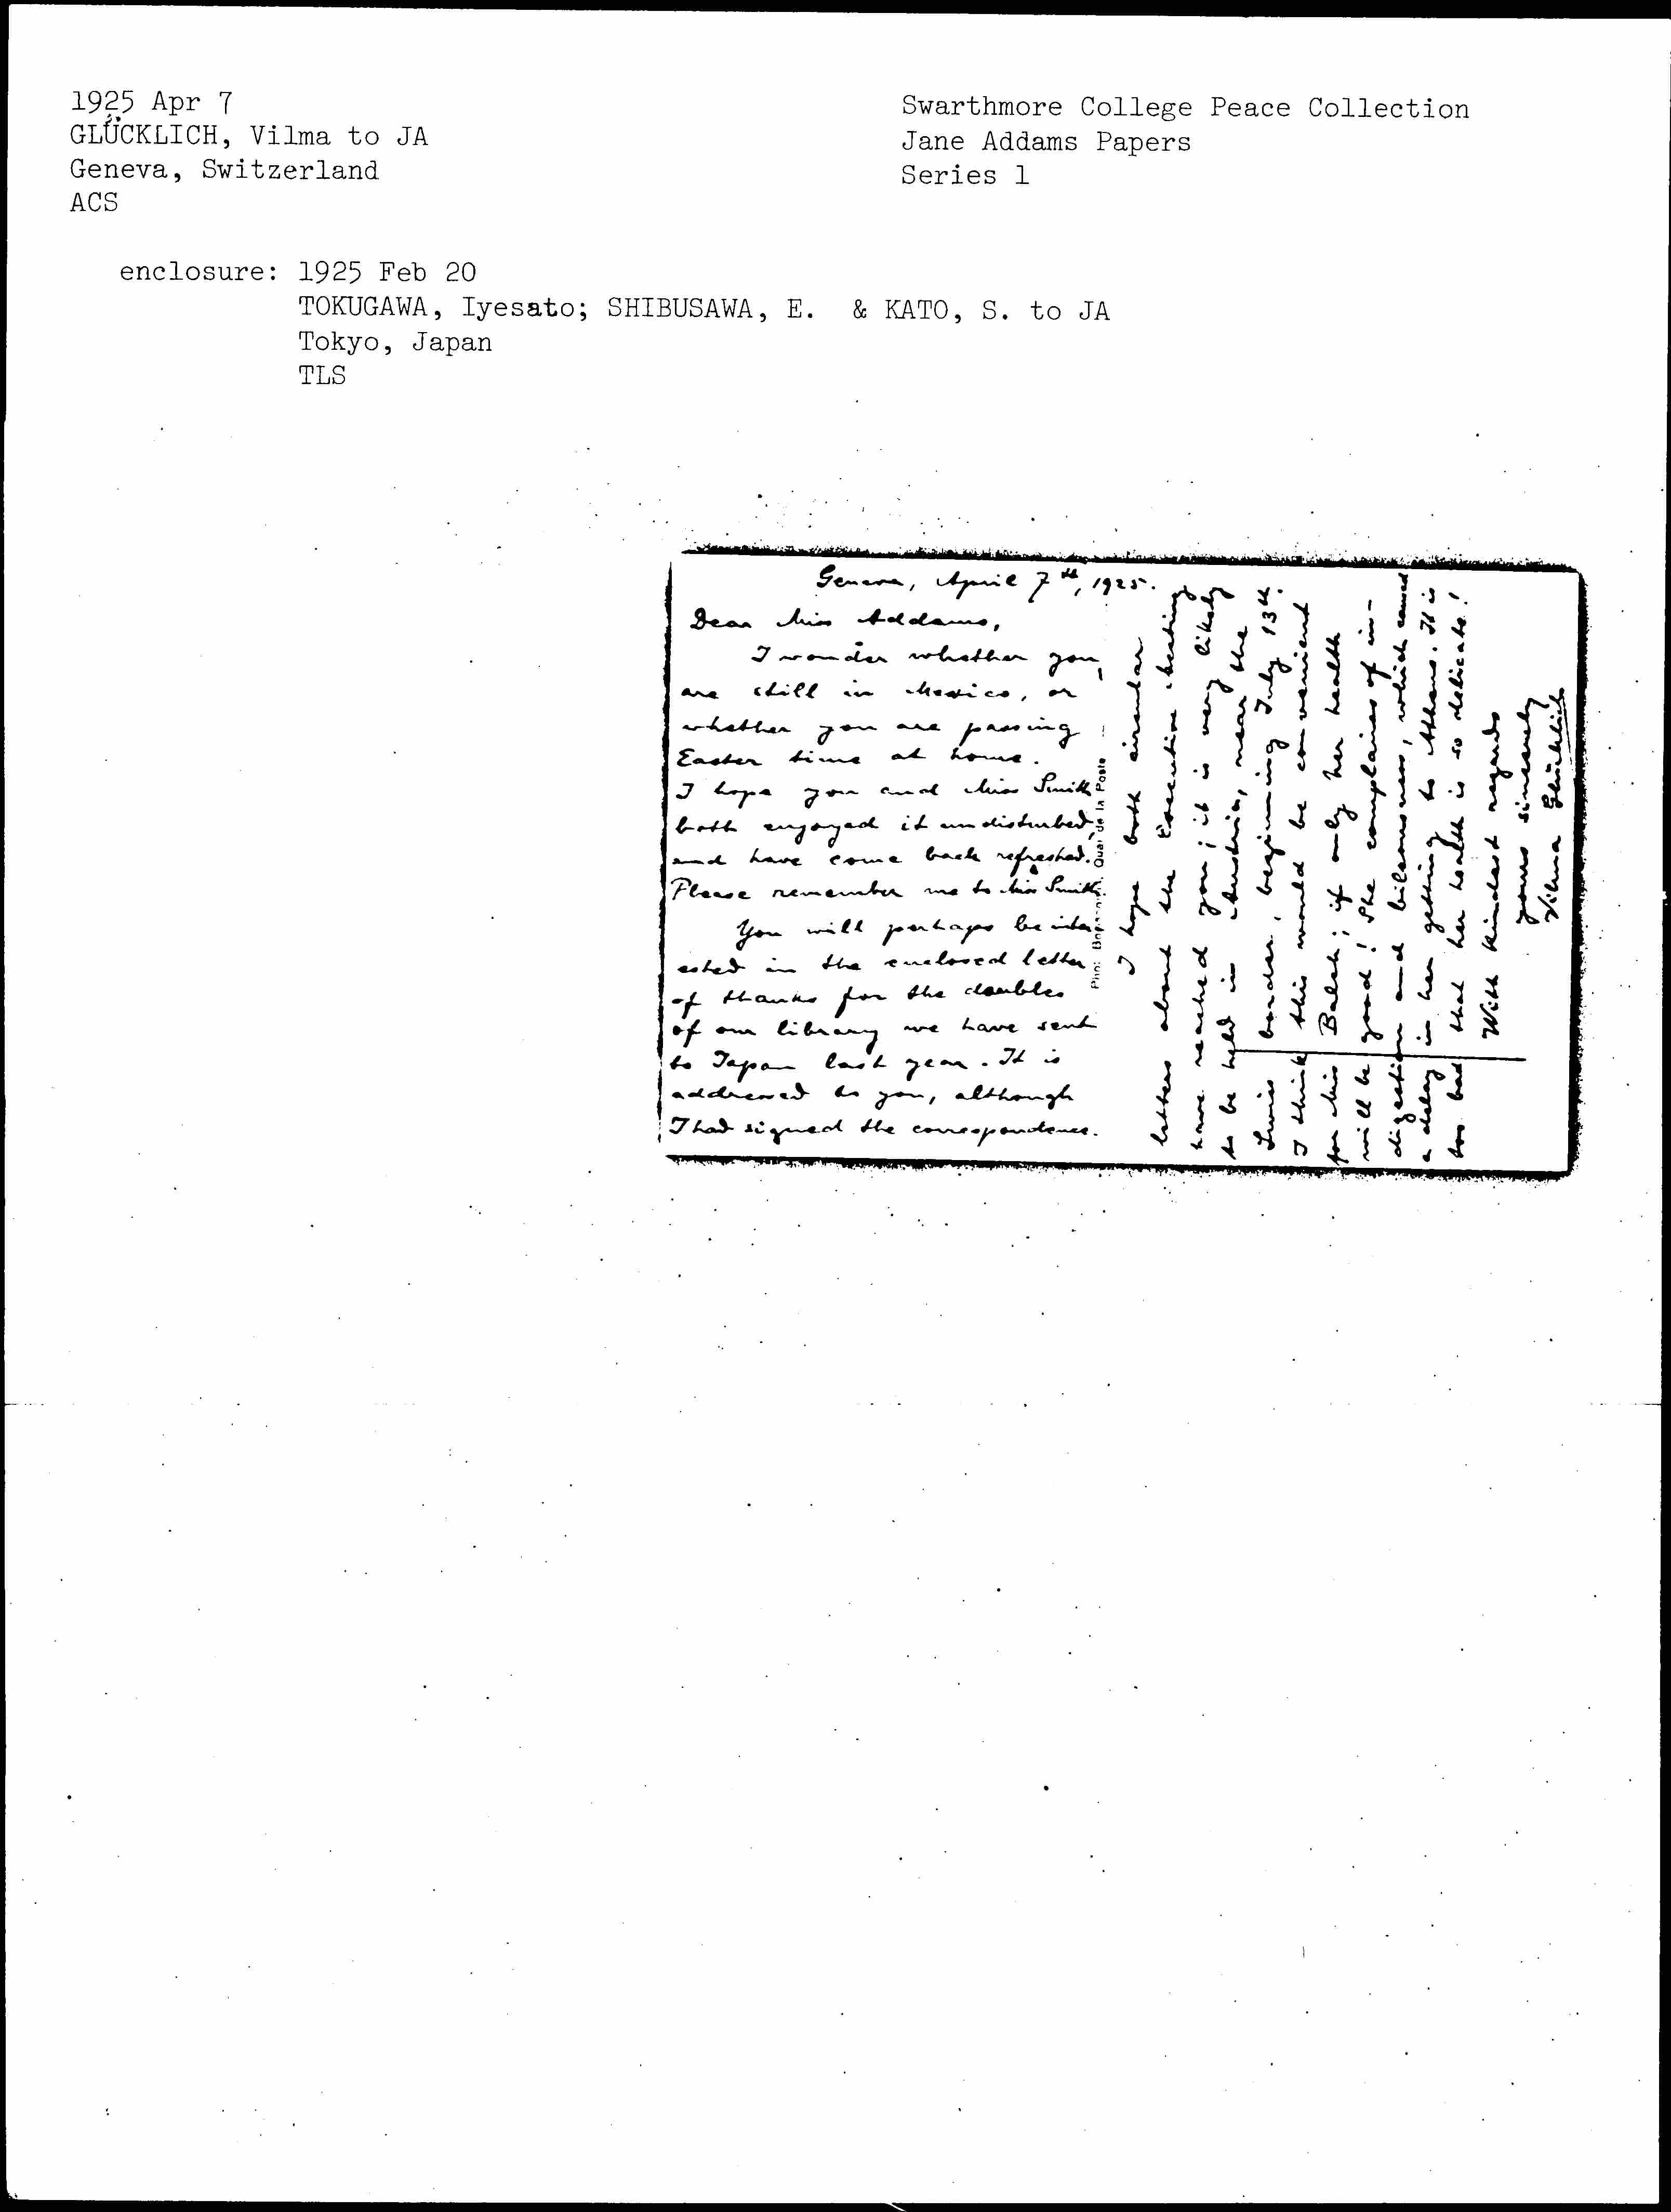 1925 Apr 7
GLÜCKLICH, Vilma to JA
Geneva, Switzerland
ACS
Swarthmore College Peace Collection
Jane Addams Papers
Series 1
enclosure: 1925 Feb 20
TOKUGAWA, Iyesato; SHIBUSAWA, E. & KATO, S. to JA
Tokyo, Japan
TLS
Geneva, April 7th, 1925.
Dear Miss Addams,
I wonder whether you
are still in Mexico, or
whether you are passing
Easter time at home.
I hope you and Miss Smith
both enjoyed it undisturbed,
and have come back refreshed.
Please remember me to Miss Smith.
You will perhaps be inter-
ested in the enclosed letter
of thanks for the doubles
of our library we have sent
to Japan last year. It is
addressed to you, although
I had signed the correspondence.
Quai de la Poste
I hope both circular
letters about the Executive Meeting
have reached you; it is very likely
to be held in Austria, near the
Swiss border, beginning July 13th.
I think this would be convenient
for Miss Balch; if only her health
will be good! She complains of in-
digestion and biliousness, which caused
a delay in her getting to Athens. It is
too bad that her health is so delicate!
With kindest regards
yours sincerely
Vilma Glücklich